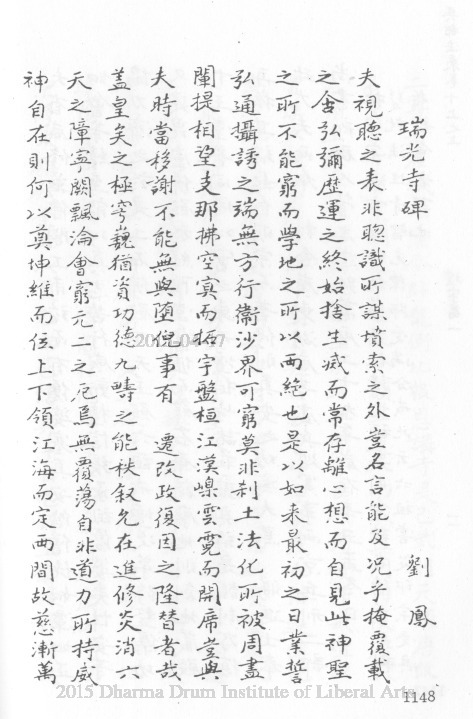 瑞光寺碑
劉鳳
夫視聽之表非聰識所謀墳索之外豈名言能及况乎掩覆載
之舍弘彌歷運之終始捨生滅而常存離心想而自見此神聖
之所不能窮而學地之所以兩絕也是以如来最初之日業誓
弘通攝誘之端無方行衞沙界可窮莫非刹土法化所被周盡
闡提相望支那拂空寞而拓宇盤桓江漢㠔雲霓而開席豈與
夫時當移謝不能無與墮倪事有遷改政復因之隆替者哉
盖皇矣之極穹巍猶資功德九疇之能秩叙允在進修災消六
天之障寧闕飄淪會窮元二之厄焉無覆蕩自非道力所持威
神自在則何以奠坤維而位上下領江海而定两間故慈漸萬
1148
2015 Dharma Drum Institute of Liberal Arts